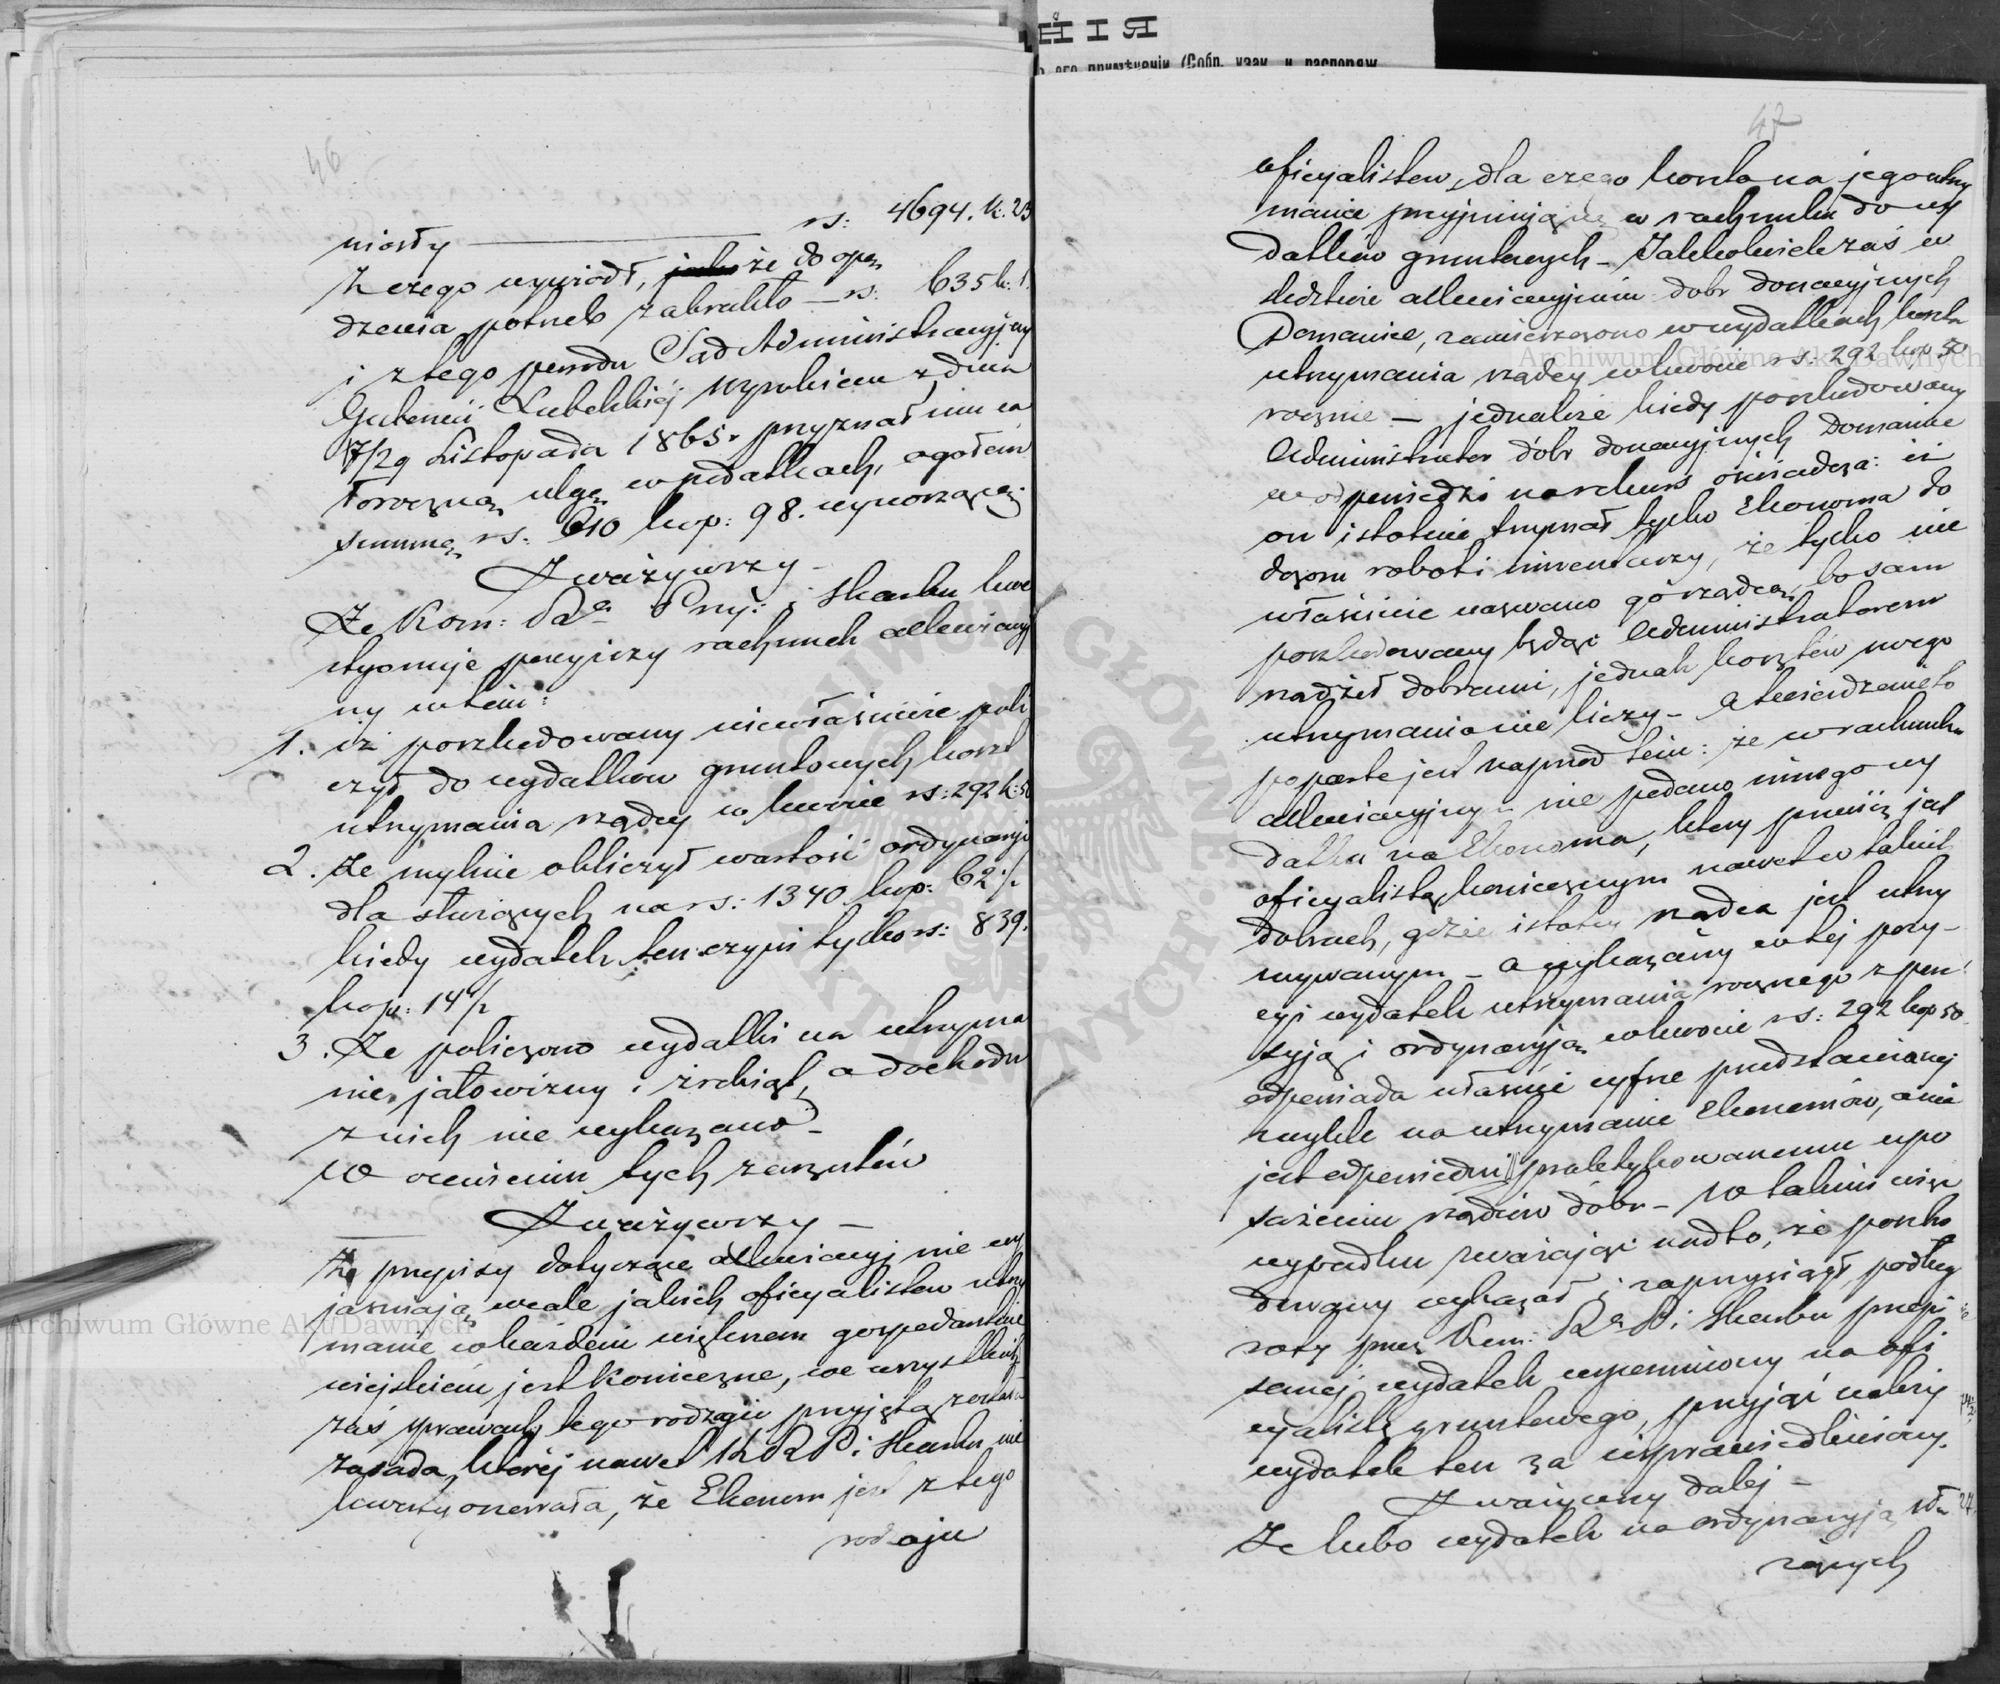 46
niosły — rs: 4694. k. 23
Z czego wywiódł, że do opę
dzenia potrzeb zabrakło — rs: 635 k: 1.
i z tego powodu Sąd Administracyjny
Gubernii Lubelskiéj wyrokiem z dnia
17/29 Listopada 1865 r przyznał mu za
toroczną ulgę w podatkach, ogółem
summę rs. 610 kop: 98. wynoszącą.
Zważywszy –
Że Kom: Rząd Przy: i Skarbu kwe
styonuje pozycizy rachunek allewiacyj
ny w tem:
1. iż poszkodowany niewłaściwie poli
czył do wydatków gruntowych koszt
utrzymania rządcy w kwocie rs: 292 k: 50
2. Że mylnie obliczył wartość ordynaryi
dla służących na rs: 1340 kop: 62½
kiedy wydatek ten czyni tylko rs: 839.
kop: 14½
3. Że policzono wydatki na utrzyma
nie jałowizny i źrebiąt, a dochodu
z nich nie wykazano –
W ocenieniu tych zarzutów
Zważywszy –
Że przepisy dotyczące allewiacyj nie wy
jaśniają wcale jakich oficyalistów utrzy
manie w każdem większem gospodarstwie
wiejskiem jest konieczne, we wszystkich
zaś sprawach tego rodzaju przyjętą została
zasada, któréj nawet K R P i Skarbu nie
kwestyonowała, że Ekonom jest z tego
rodzaju
47
oficyalistów, dla czego koszta na jego utrzy
manie przyjmują się w rachunku do wy
datków gruntowych – Jakkolwiek zaś w
śledztwie allewiacyjnem dóbr donacyjnych
Domanice, zamieszczono w wydatkach koszta
utrzymania rządcy w kwocie rs: 292 kop 50
rocznie — jednakże kiedy poszkodowany
Administrator dóbr donacyjnych Domanice
w odpowiedzi na rekurs oświadcza: iż
on istotnie trzymał tylko Ekonoma do
dozoru roboti inwentarzy, że tylko nie
właściwie nazwano go rządcą, bo sam
poszkodowany będąc Administratorem
rządził dobrami, jednak kosztów swego
utrzymania nie liczy – A twierdzenie to
poparte jest naprzód tem: że w rachunku
allewiacyjnym nie podano innego wy
datku na Ekonoma, który przecież jest
oficyalistą koniecznym nawet w takich
dobrach, gdzie istotny rządca jest utrzy
mywanym – a wykazany w téj pozy–
cyi wydatek utrzymania rocznego z pen
syją i ordynaryją w kwocie rs: 292 kop 50
odpowiada właśnie cyfrze przedstawianéj
zwykle na utrzymanie Ekonomów, a nie
jest odpowiedni praktykowanemu upo
sażeniu rządców dóbr – W takim więc
wypadku zważając nadto, że poszko
dowany wykazał i zaprzysiągł podług
roty przez Kom: Rz. P. i Skarbu przepi
sanéj wydatek wspomniony na ofi
cyalistę gruntowego, przyjąć należy
wydatek ten za usprawiedliwiony.
Zważywszy daléj –
Że lubo wydatek na ordynaryją słu
żących
Archiwum Główne Akt Dawnych
Archiwum Główne Akt Dawnych
ARCHIWUM GŁÓWNE AKT DAWNYCH
НІЯ